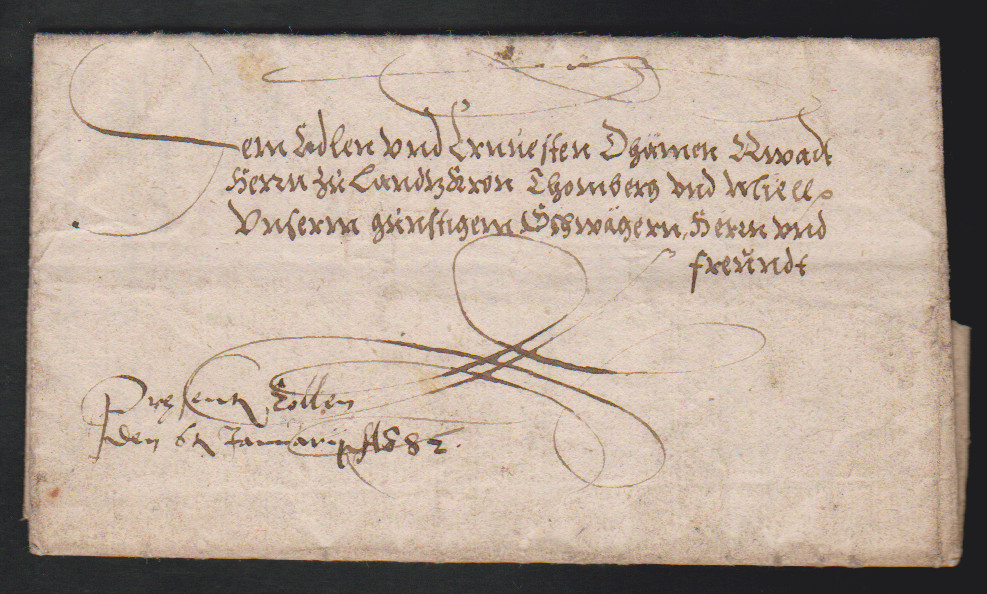 Dem Edlen vnd Ernuesten Dhamen Quadt
Herrn zu Landtzkron Thomberg vnd Miell
Vnserm günstigem Schwagern, Herrn vnd
freündt
Present Collen
den 6t January A 82.